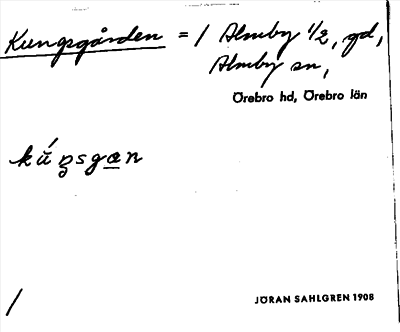 Kungsgården = 1 Almby 1/2, gd,
Almby sn,
Örebro hd, Örebro län
kúŋsgan
JÖRAN SAHLGREN 1908
/